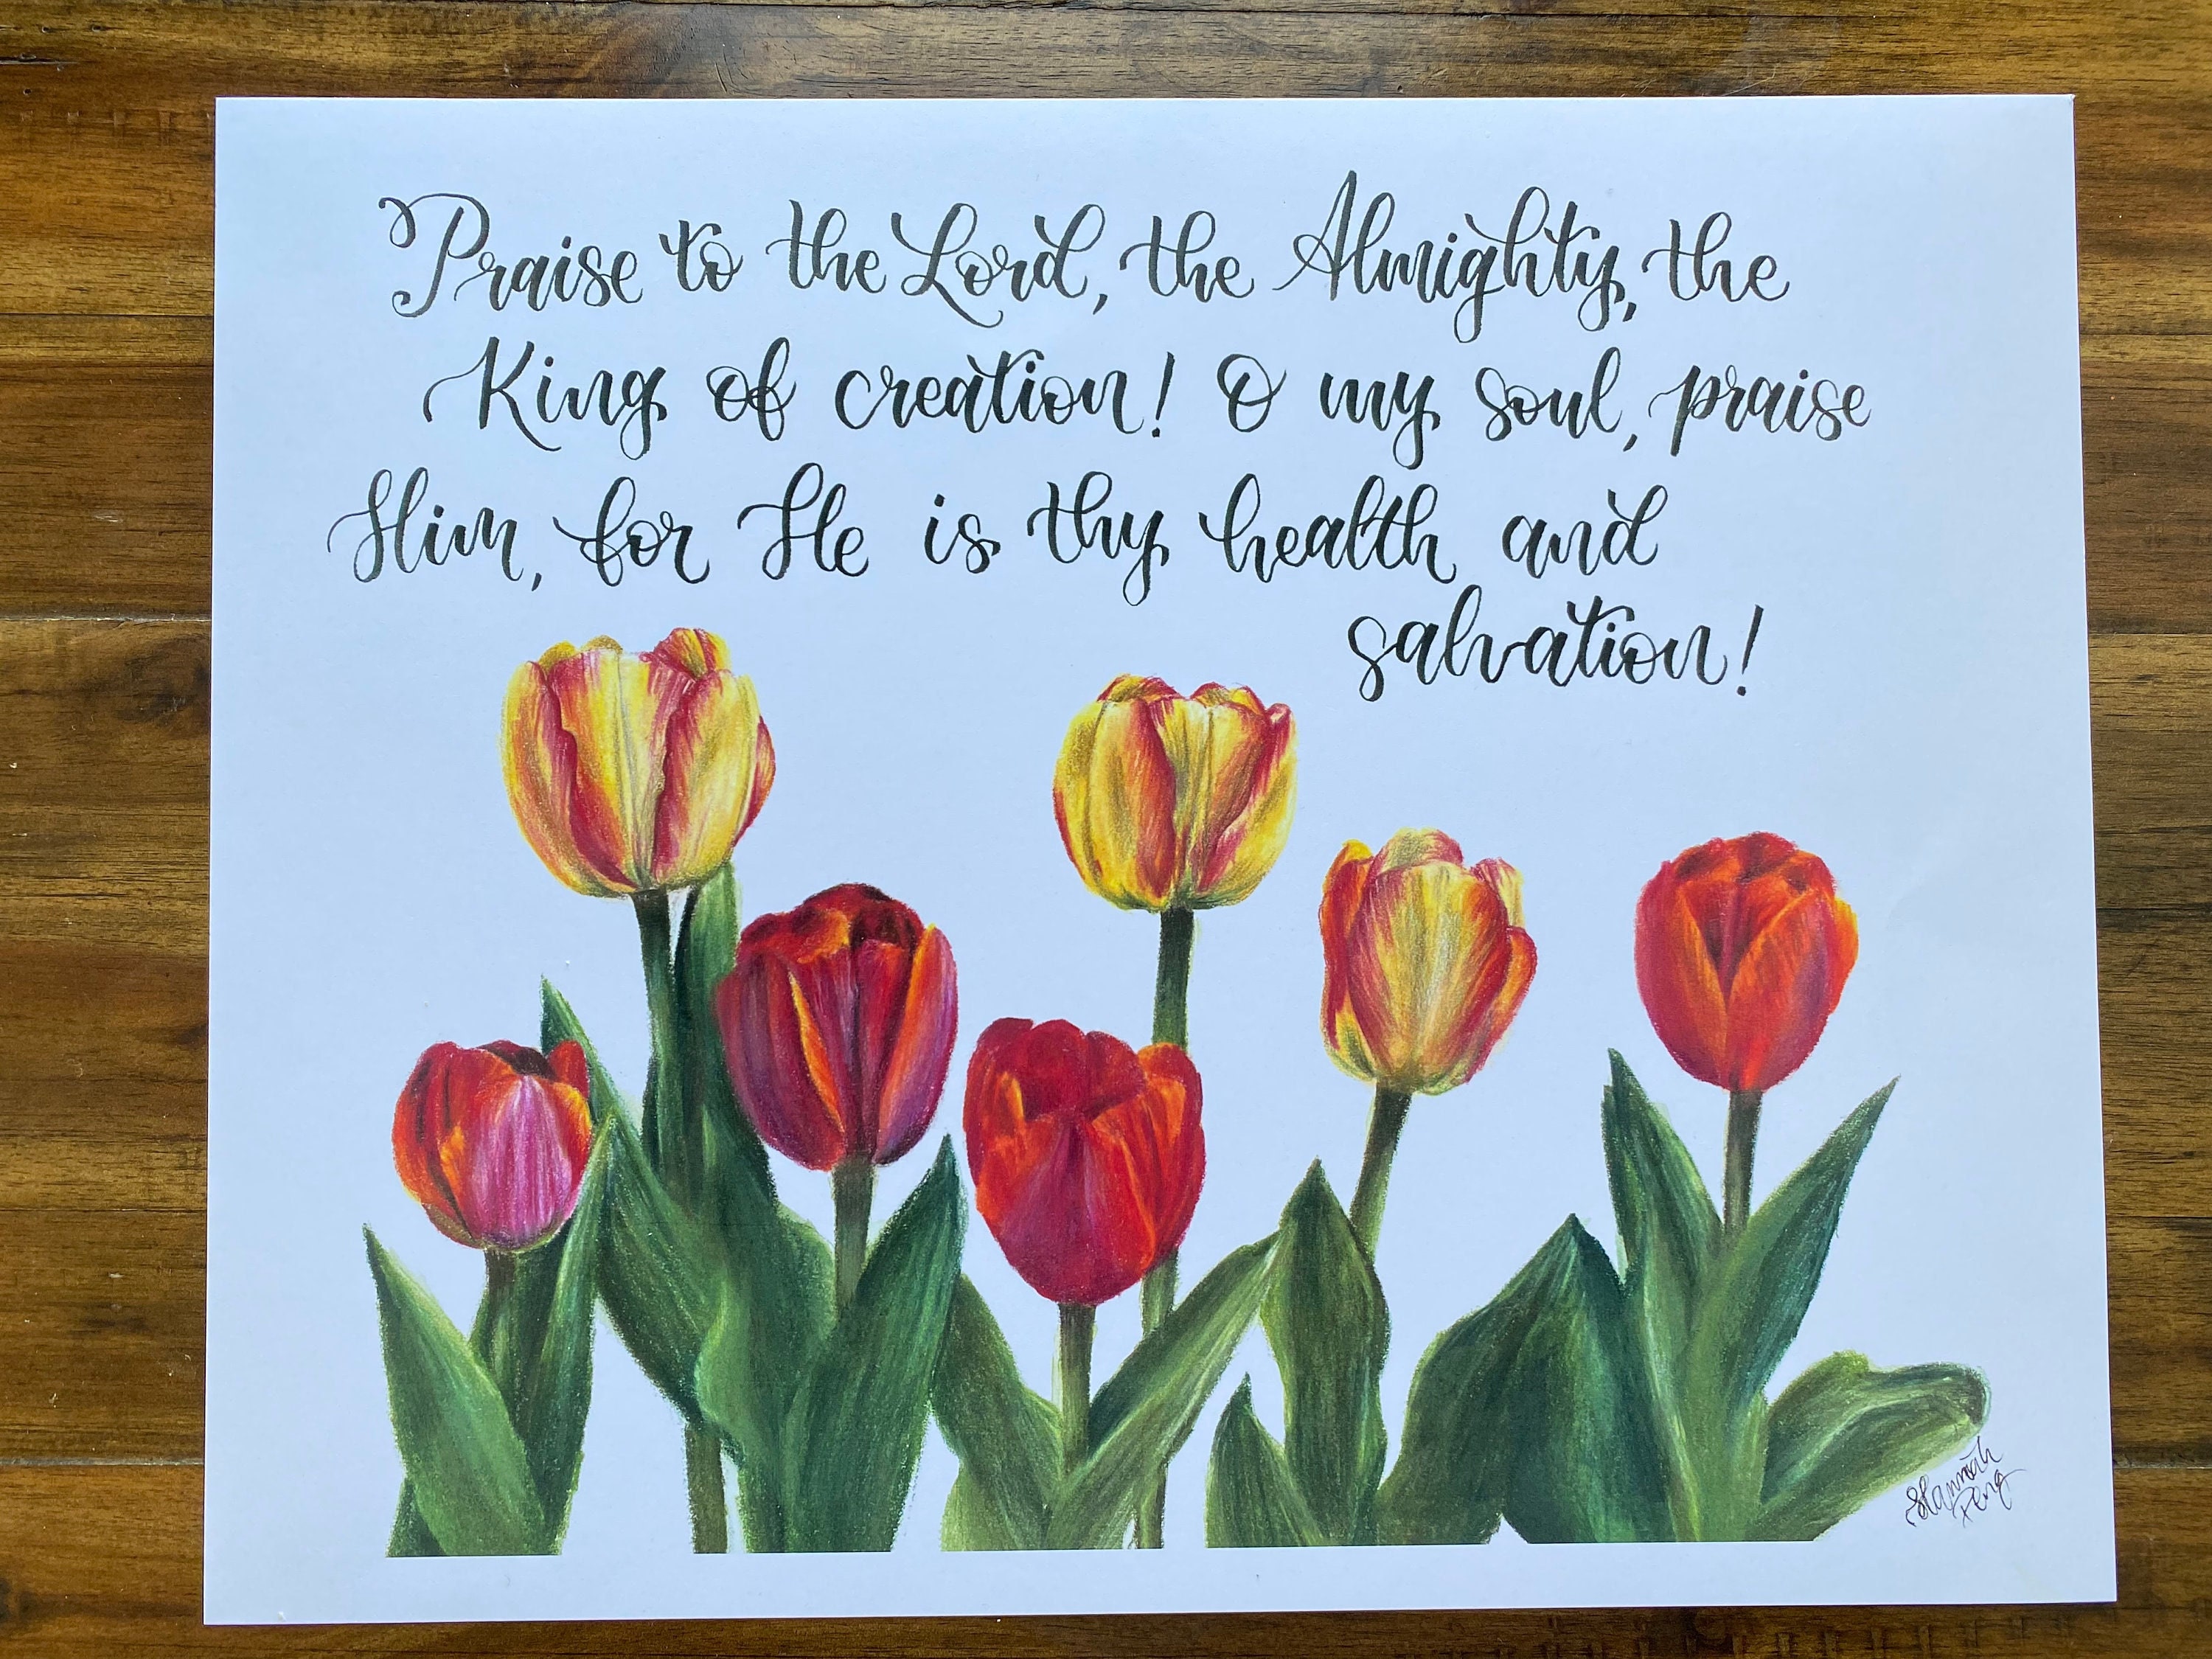 Praise to the Lord, the Almighty, the
King of creation! O my soul, praise
Him, for He is thy health and
salvation!
Hannah
Peng